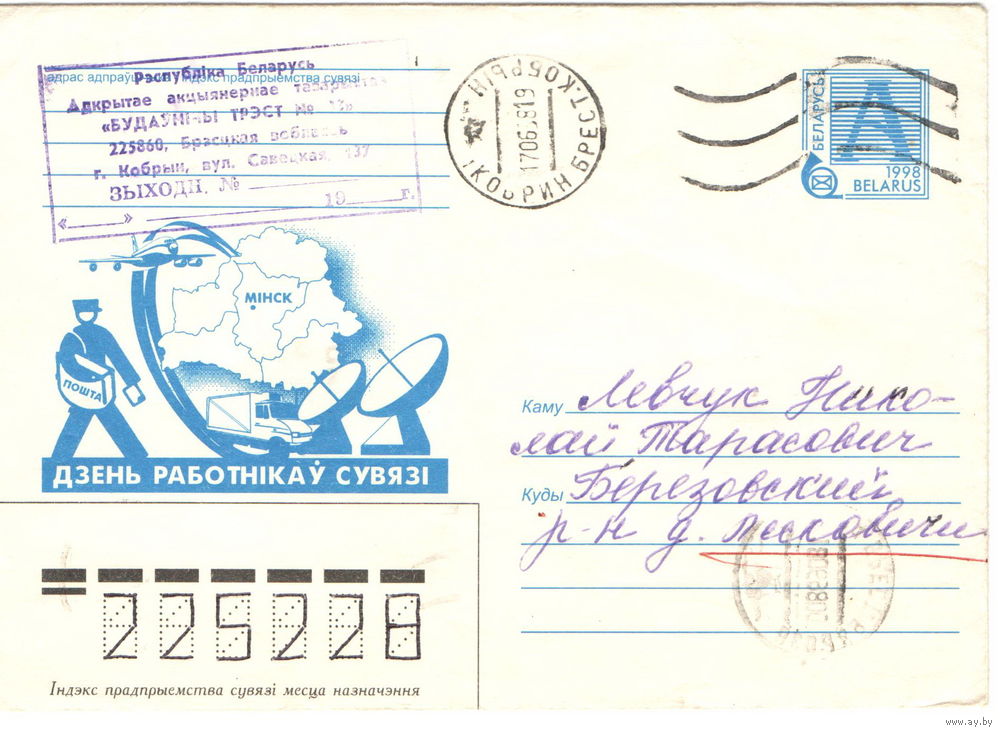 адрас адпраўшч індэкс прадпрыемства сувязі
Рэспубліка Беларусь
Адкрытае акцыянернае таварыства
«БУДАЎНІЧЫ ТРЭСТ №
225860, Брэсцкая вобласць
г. Кобрын, вул. Савецкая, 137
ЗЫХОДН. №
«____» 19____г.
КОБРЫН
КОБРИН БРЕСТ.
БЕЛАРУСЬ
А
1998
BELARUS
МІНСК
ПОШТА
ДЗЕНЬ РАБОТНІКАЎ СУВЯЗІ
Каму Левчук Нико-
лай Тарасович
Куды Березовский
р-н д. Песковичи
225228
Індэкс прадпрыемства сувязі месца назначэння
www.ay.by